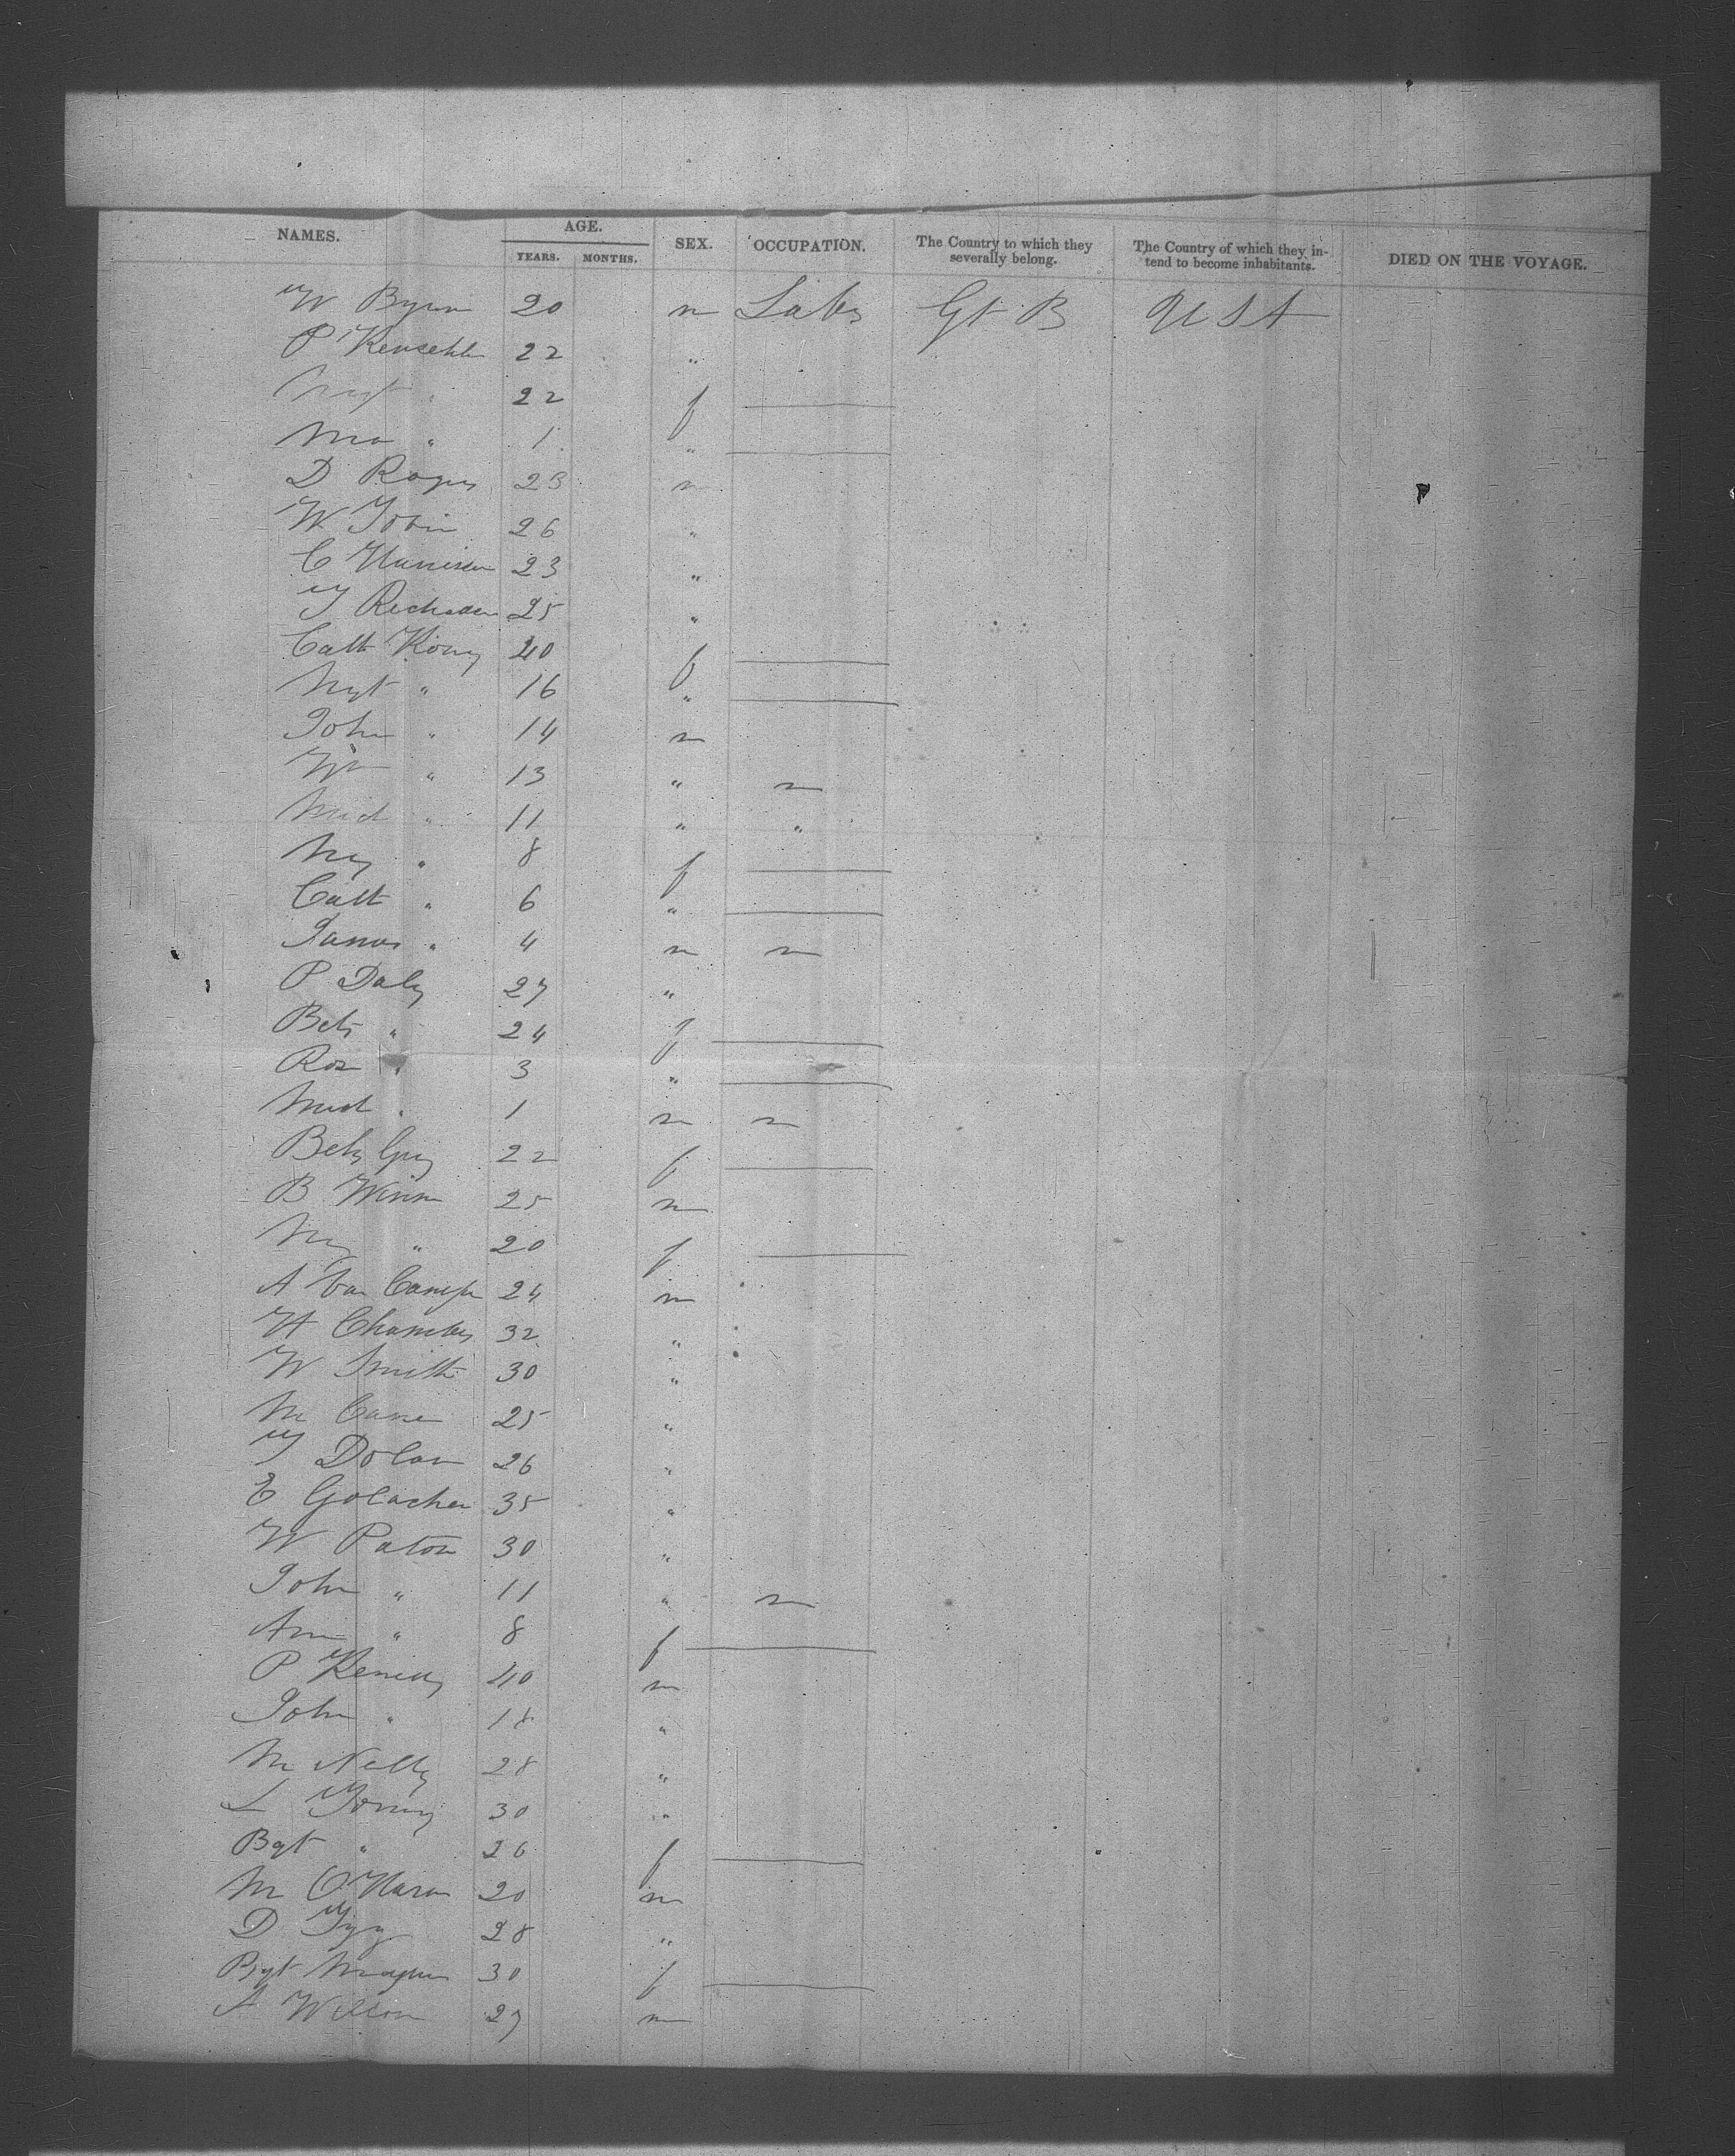 NAMES. AGE. YEARS. MONTHS. SEX. OCCUPATION. The Country to which they severally belong. The Country of which they intend to become inhabitants. DIED ON THE VOYAGE.
W Byrne 20 m Labr Gt B U S A
P 22 "
Mgt " 22 f
Ma " 1 "
D Rogers 23 m
W Tobin 26 "
C Harrison 23 "
T 25 "
Cath 40 f
Mgt " 16 "
John " 14 m
Wm " 13 " m
Mich " 11 " "
My " 8 f
Cath " 6 "
James " 4 m m
P Daly 27 "
Bets " 24 f
Rose " 3 "
Mich " 1 m m
Bets 22 f
B Winn 25 m
My " 20 f
A Van Camp 24 m
H Chambers 32 "
W Smith 30 "
M Cane 25 "
T Dolan 26 "
E 35 "
W Paton 30 "
John " 11 " m
Ann " 8 f
P 40 m
John " 18 "
M Nelly 28 "
L 30 "
Bgt " 26 f
M O'Hara 20 m
D 28 "
Bgt 30 f
A Wilson 27 m